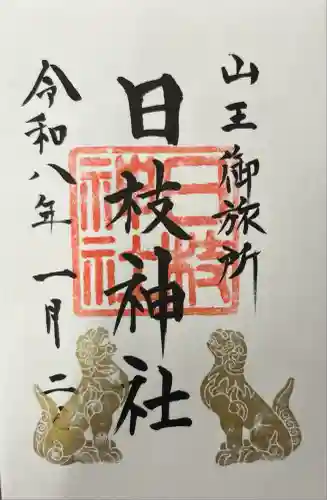 山王御旅所
日枝神社
令和八年一月二
日枝神社